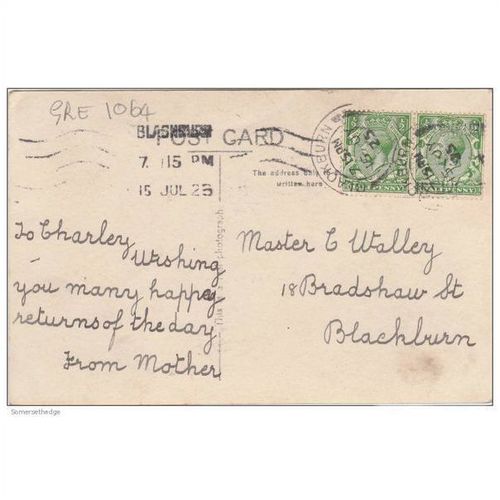 GRE 1064
BLACKBURN
POST CARD
7. 15 PM
15 JUL 25
BLACKBURN
The address only
written here
To Charley
Wishing
you many happy
returns of the day
From Mother
Master C Walley
18 Bradshaw St
Blackburn
Somersethedge